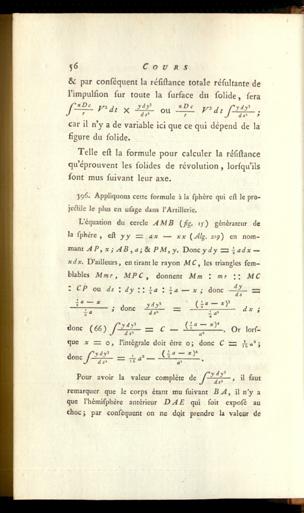 56 COURS
& par conséquent la résistance totale résultante de
l'impulsion sur toute la surface du solide, sera
∫ nDc/r V² dt × ydy³/ds² ou nDc/r V² dt ∫ ydy³/ds² ;
car il n'y a de variable ici que ce qui dépend de la
figure du solide.
Telle est la formule pour calculer la résistance
qu'éprouvent les solides de révolution, lorsqu'ils
sont mus suivant leur axe.
396. Appliquons cette formule à la sphère qui est le pro-
jectile le plus en usage dans l'Artillerie.
L'équation du cercle AMB (fig. 15) générateur de
la sphère, est yy = ax — xx (Alg. 219) en nom-
mant AP, x; AB, a; & PM, y. Donc ydy = ½adx —
xdx. D'ailleurs, en tirant le rayon MC, les triangles sem-
blables Mmr, MPC, donnent Mm : mr :: MC
: CP ou ds : dy :: ½a : ½a — x ; donc dy/ds =
(½a — x)/(½a) ; donc ydy³/ds² = (½a — x)³/(¼a²) dx ;
donc (66) ∫ ydy³/ds² = C — (½a — x)⁴/a². Or lors-
que x = 0, l'intégrale doit être 0; donc C = 1/16 a² ;
donc ∫ ydy³/ds² = 1/16 a² — (½a — x)⁴/a².
Pour avoir la valeur complète de ∫ ydy³/ds², il faut
remarquer que le corps étant mu suivant BA, il n'y a
que l'hémisphère antérieur DAE qui soit exposé au
choc; par conséquent on ne doit prendre la valeur de